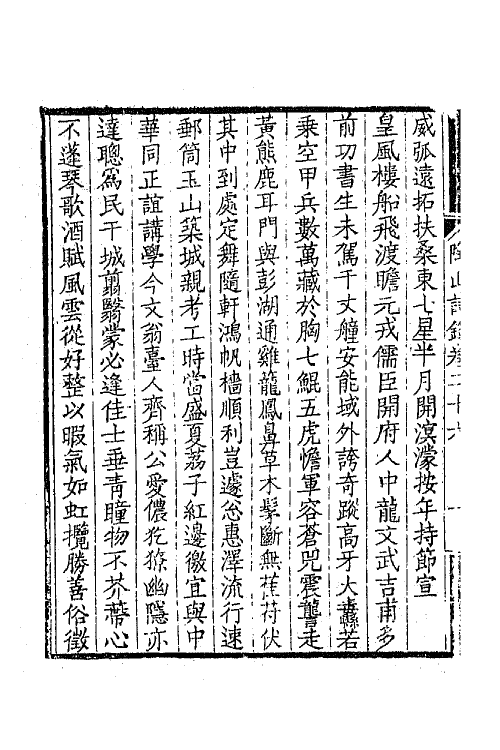 威弧遠拓扶桑東七星半月開溟濛按年持節宣
皇風樓船飛渡瞻元戎儒臣開府人中龍文武吉甫多
前功書生未駕千丈艟安能域外誇奇蹤高牙大纛若
乘空甲兵數萬藏於胸七鯤五虎憺軍容蒼兕震讋走
黃熊鹿耳門與彭湖通雞龍鳳鼻草木髳斷無萑苻伏
其中到處定舞隨軒鴻帆檣順利豈遽忩惠澤流行速
郵筒玉山築城親考工時當盛夏荔子紅邊徼宜與中
華同正誼講學今文翁臺人齊稱公愛儂犵獠幽隱亦
達聰爲民干城翦翳蒙必逢佳士垂青瞳物不芥蔕心
不蓬琴歌酒賦風雲從好整以暇氣如虹攬勝善俗徵